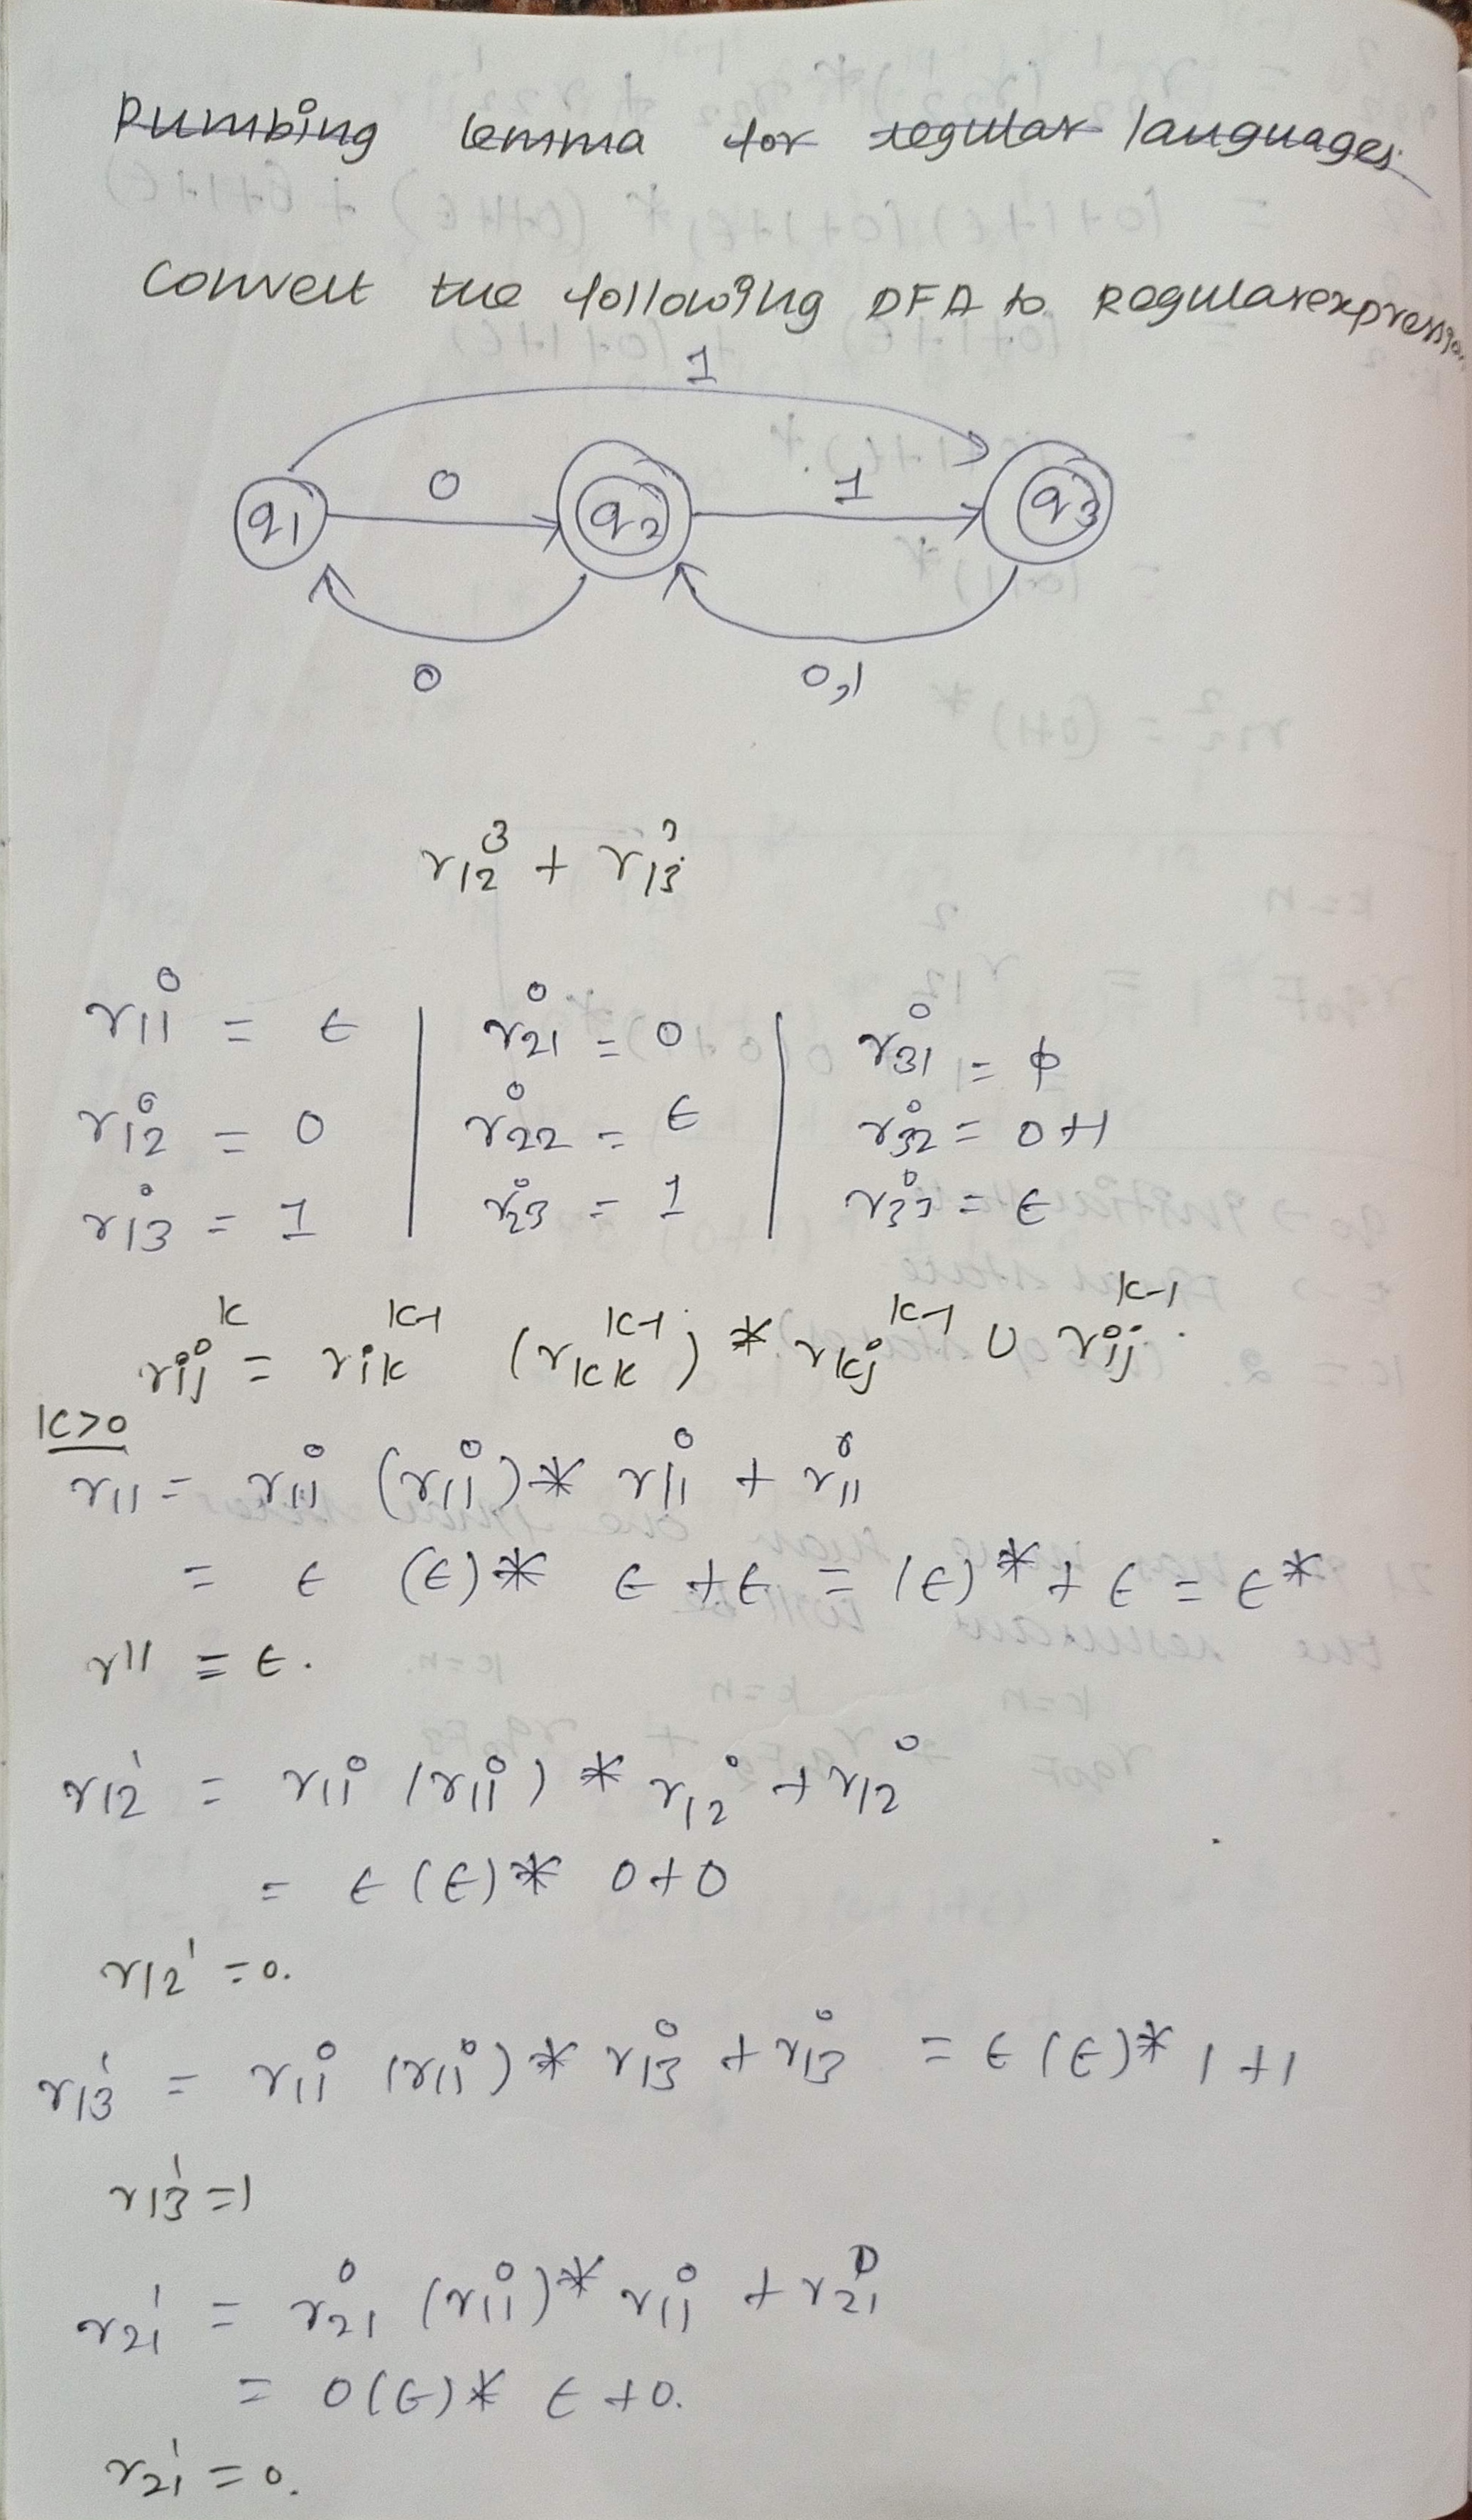 Pumbing lemma for regular languages.
Convert the following DFA to Regularexpression
1
0
1
q1
q2
q3
0
0,1
r12^3 + r13^3
r11^0 = ε | r21^0 = 0 | r31^0 = φ
r12^0 = 0 | r22^0 = ε | r32^0 = 0+1
r13^0 = 1 | r23^0 = 1 | r33^0 = ε
rij^k = rik^k-1 (rkk^k-1)* rkj^k-1 ∪ rij^k-1.
k>0
r11 = r11^0 (r11^0)* r11^0 + r11^0
= ε (ε)* ε + ε = (ε)* + ε = ε*
r11 = ε.
r12^1 = r11^0 (r11^0)* r12^0 + r12^0
= ε (ε)* 0+0
r12^1 = 0.
r13^1 = r11^0 (r11^0)* r13^0 + r13^0 = ε (ε)* 1+1
r13^1 = 1
r21^1 = r21^0 (r11^0)* r11^0 + r21^0
= 0(ε)* ε + 0.
r21^1 = 0.